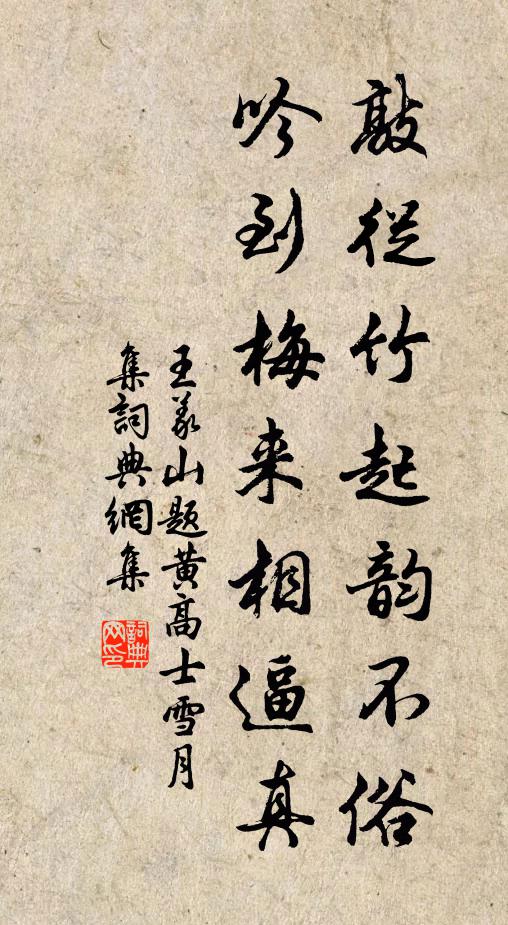 敲從竹起韵不俗
吟到梅来相逼真
王義山题黄高士雪月
集詞典網集
詞典
网印